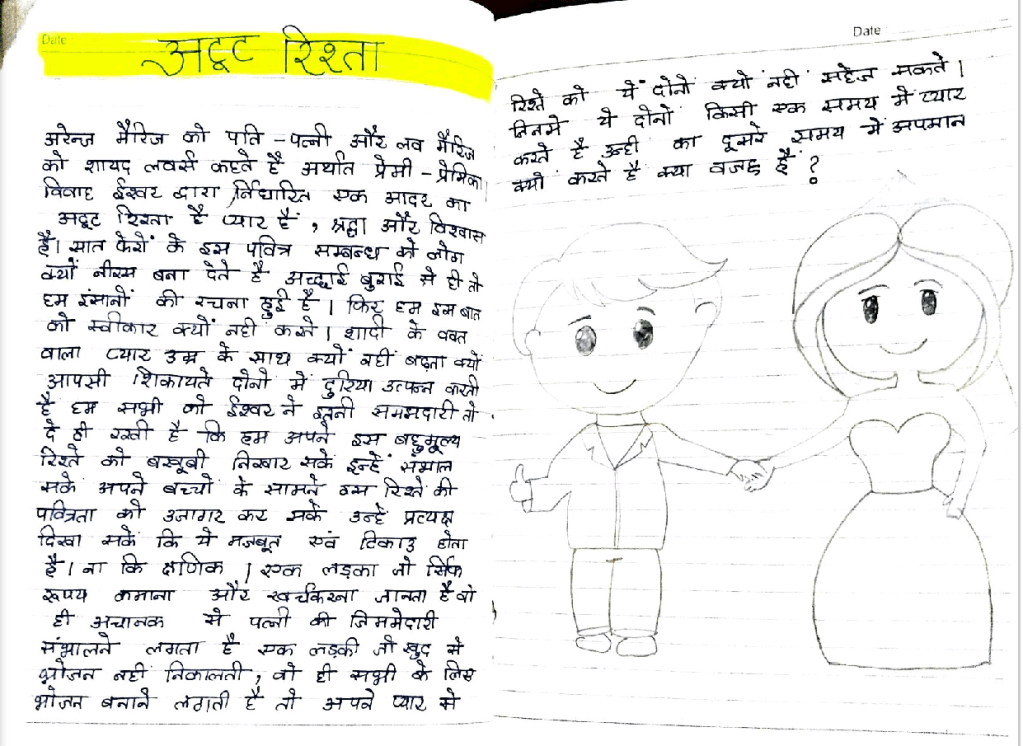 Date
अटूट रिश्ता
अरेन्ज मैरिज को पति - पत्नी और लव मैरिज
को शायद लवर्स कहते है अर्थात प्रेमी - प्रेमिका
विवाह ईश्वर द्वारा निर्धारित एक आदर का
अटूट रिश्ता है प्यार है , श्रद्धा और विश्वास
है। सात फेरों के इस पवित्र सम्बन्ध को लोग
क्यों नीरस बना देते है अच्छाई बुराई से ही तो
हम इंसानों की रचना हुई है। फिर हम इस बात
को स्वीकार क्यों नही करते। शादी के वक्त
वाला प्यार उम्र के साथ क्यों नहीं बढ़ता क्यों
आपसी शिकायते दोनो में दुरिया उत्पन्न करती
है हम सभी को ईश्वर ने इतनी समझदारी तो
दे ही रखी है कि हम अपने इस बहुमूल्य
रिश्ते को बखूबी निखार सके इन्हें संभाल
सके अपने बच्चों के सामने इस रिश्ते की
पवित्रता को उजागर कर सके उन्हें प्रत्यक्ष
दिखा सकें कि ये मजबूत एवं टिकाउ होता
है। ना कि क्षणिक । एक लड़का जो सिर्फ
रूपय कमाना और खर्चकरना जानता है वो
ही अचानक से पत्नी की जिममेदारी
संभालने लगता है एक लड़की जो खुद से
भोजन नही निकालती , वो ही सभी के लिए
भोजन बनाने लगती है तो अपने प्यार से
Date
रिश्ते को ये दोनों क्यों नही सहेज सकते।
जिनमे ये दोनों किसी एक समय में प्यार
करते है उन्ही का दूसरे समय में अपमान
क्यों करते है क्या वजह है ?